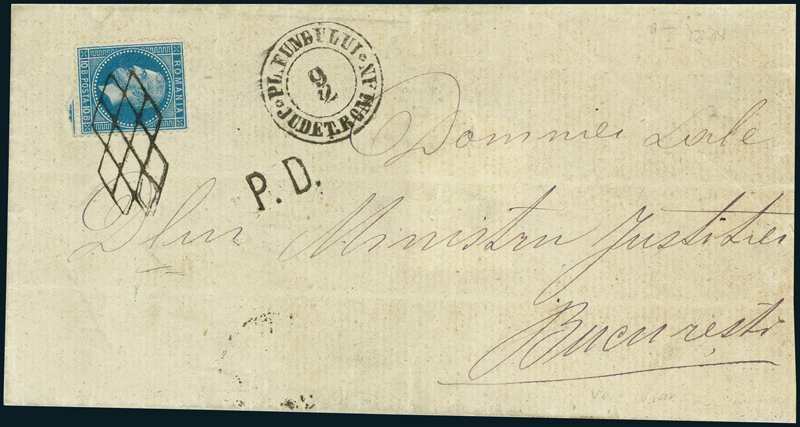 ROMANIA
10 B. POSTA 10 B.
PL. FUNDULUI · NF
9
2
JUDET. RGM
P. D.
Domniei Sale
Dlui Ministru Justitiei
București